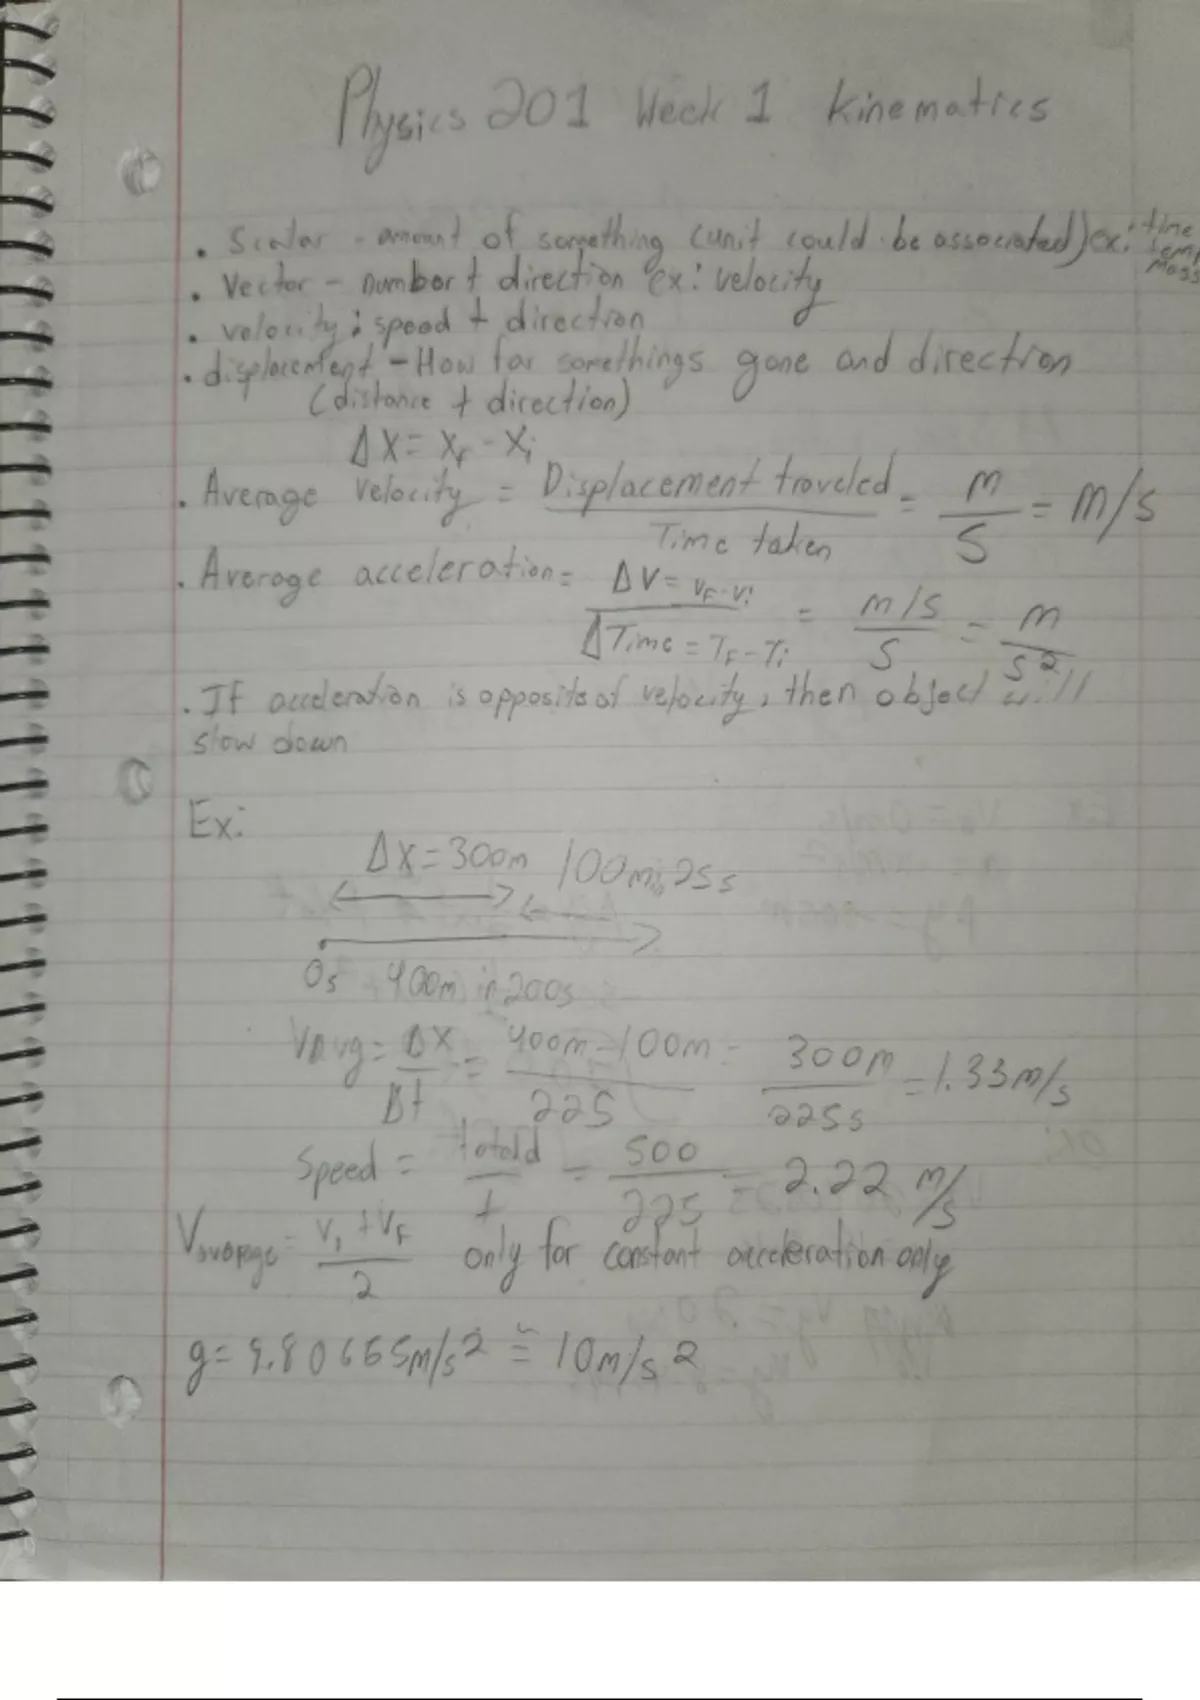 Physics 201 Week 1 Kinematics
• Scalar - amount of something (unit could be associated) ex: time temp mass
• Vector - number + direction ex: velocity
• velocity: speed + direction
• displacement - How far somethings gone and direction
(distance + direction)
ΔX = XF - Xi
• Average velocity = Displacement traveled / Time taken = m / s = m/s
• Average acceleration = ΔV = VF - Vi / ΔTime = TF - Ti = m/s / s = m / s2
• If acceleration is opposite of velocity, then object will
slow down
Ex:
ΔX = 300m 100m in 25s
0s 400m in 200s
VAvg = ΔX / Δt = 400m - 100m / 225 = 300m / 225s = 1.33 m/s
Speed = total d / t = 500 / 225 = 2.22 m/s
Vaverage = Vi + VF / 2 only for constant acceleration only
g = 9.80665m/s2 ≅ 10m/s2